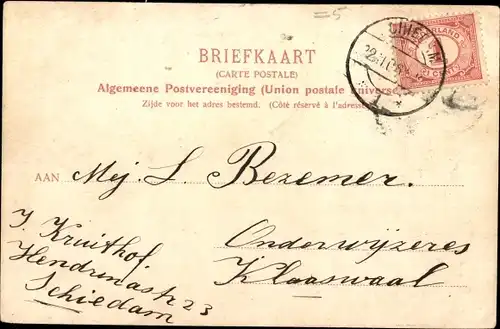 =5
BRIEFKAART
(CARTE POSTALE)
Algemeene Postvereeniging (Union postale universe
Zijde voor het adres bestemd. (Côté réservé à l'adresse
AAN Mej. L. Bezemer.
Onderwijzeres
Klaaswaal
J. Kruithof.
Hendrinastr 23
Schiedam